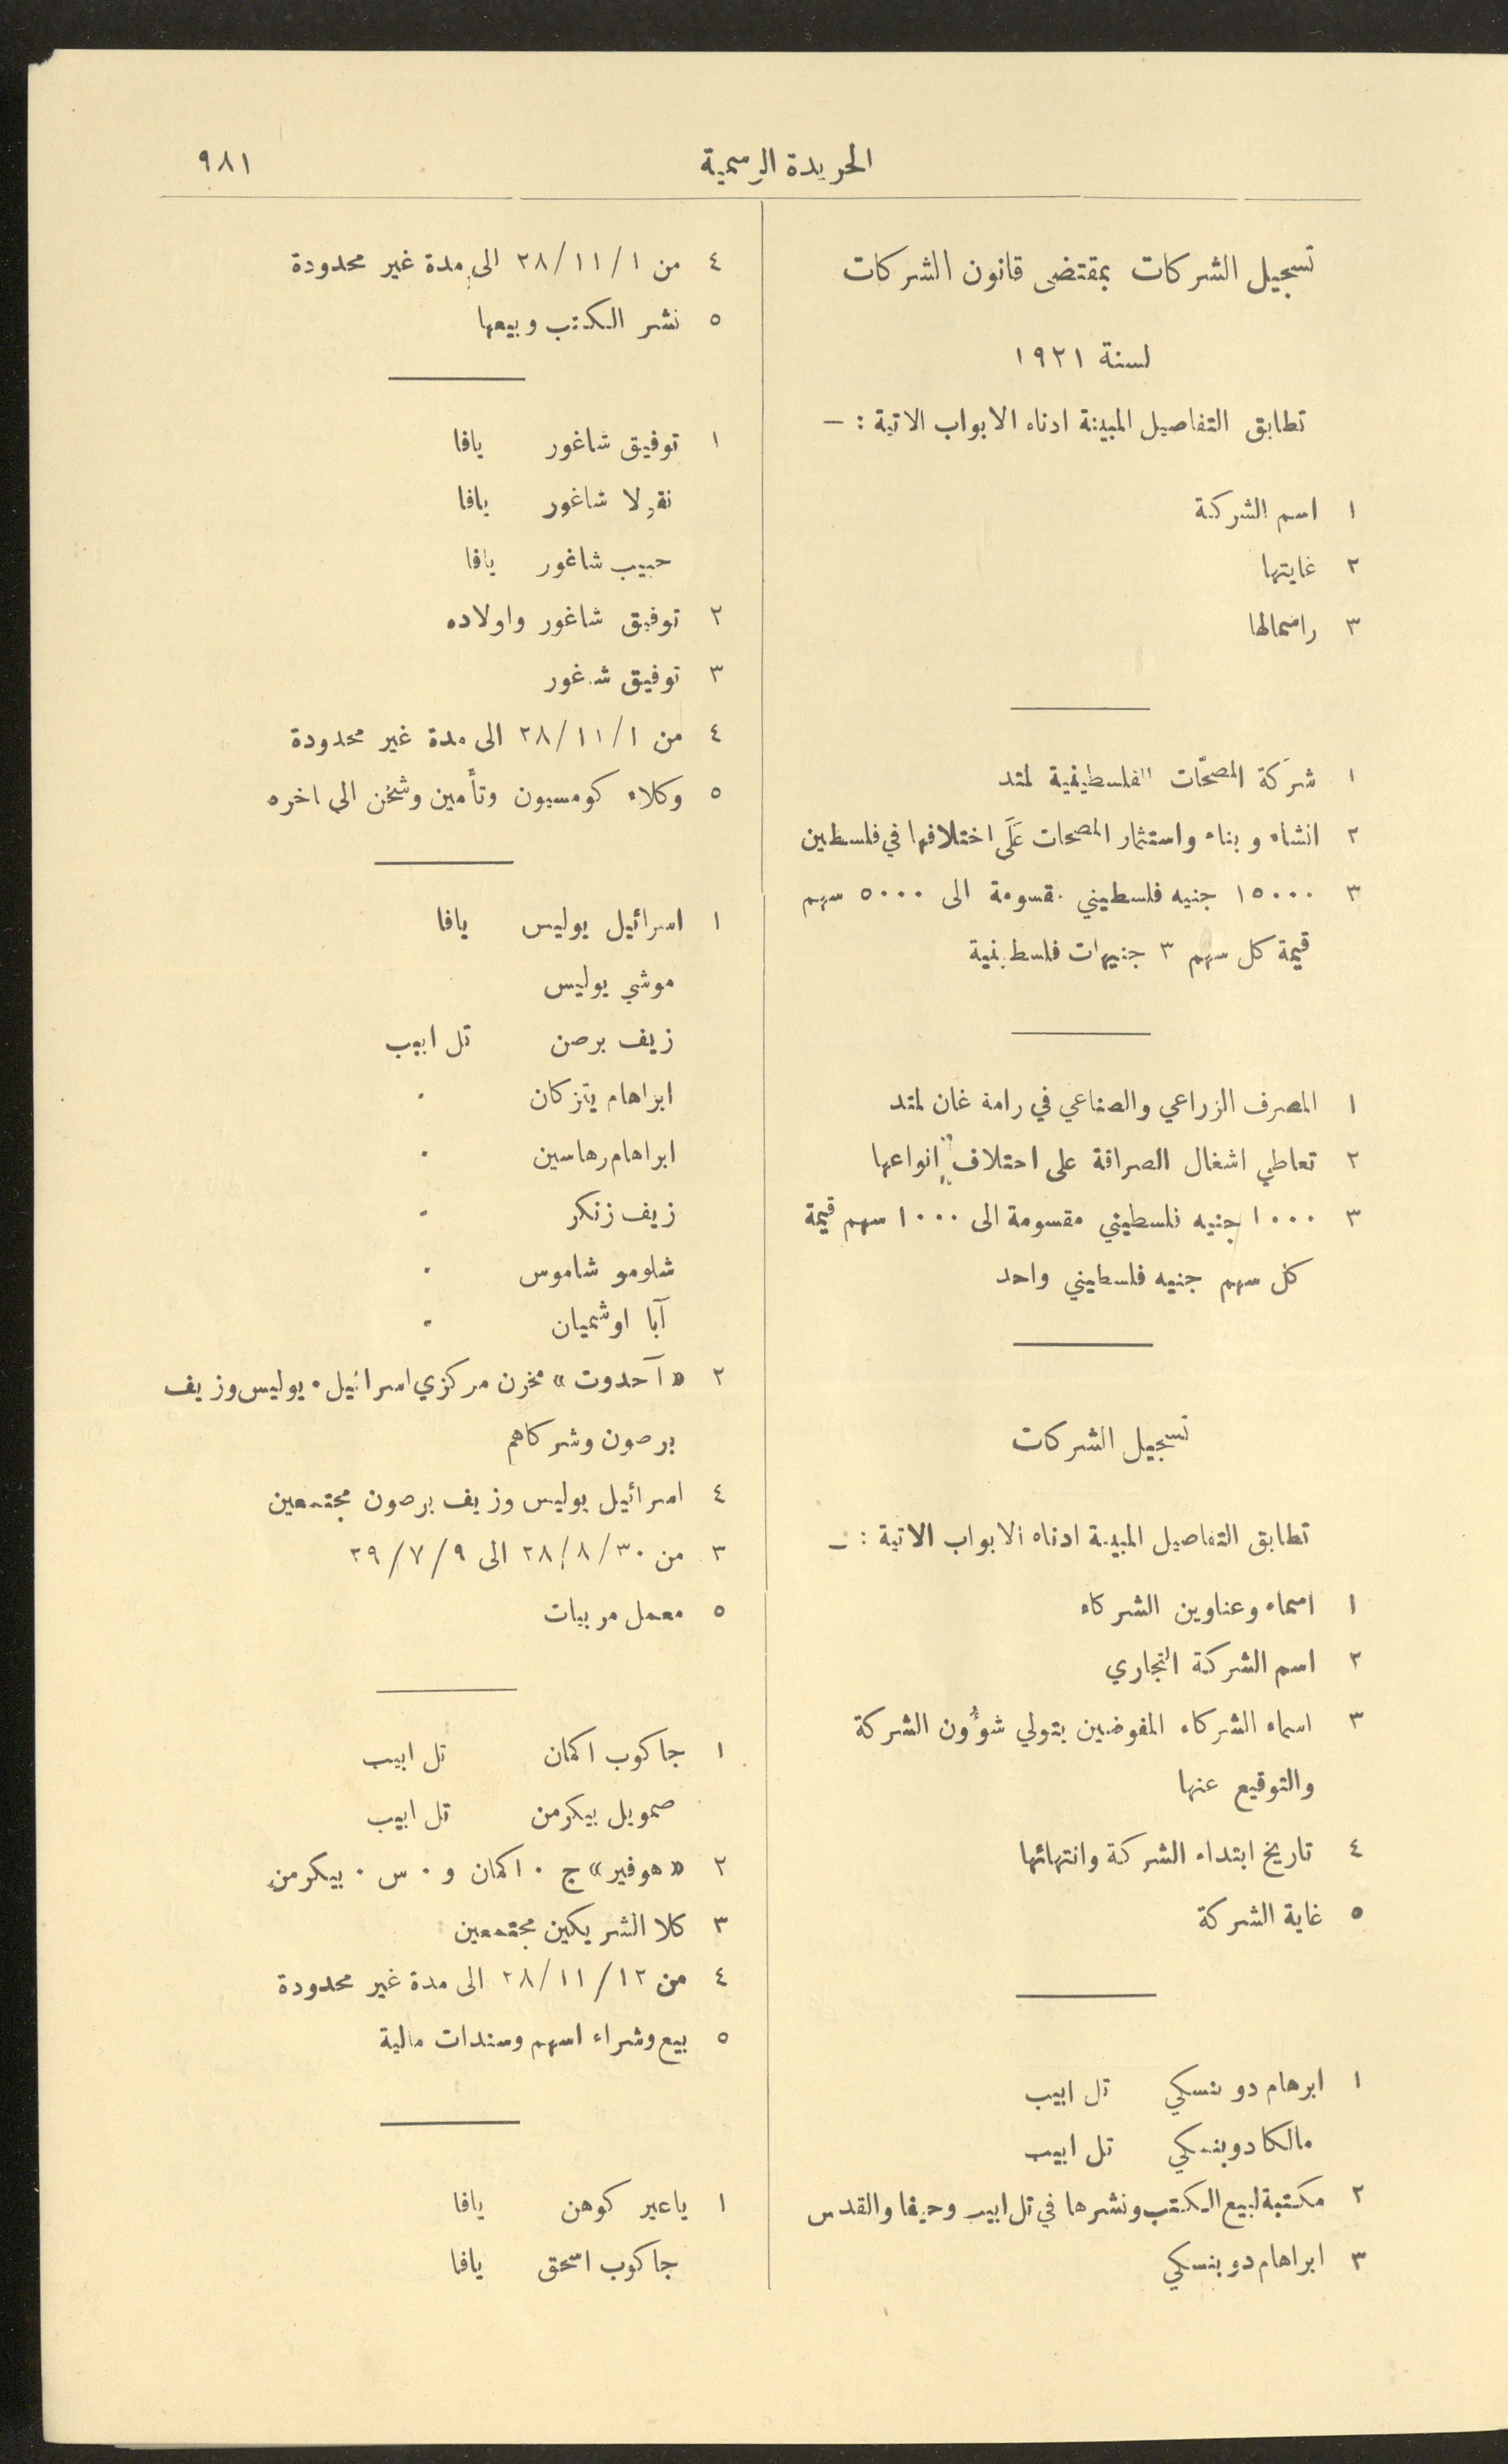 الجريدة الرسمية
٩٨١
تسجيل الشركات بمقتضى قانون الشركات
لسنة ١٩٢١
تطابق التفاصيل المبينة ادناه الابواب الاتية : —
١ اسم الشركة
٢ غايتها
٣ راسمالها
١ شركة المصحّات الفلسطينية لمتد
٢ انشاء وبناء واستثمار المصحات عَلَى اختلافها في فلسطين
٣ ١٥٠٠٠ جنيه فلسطيني مقسومة الى ٥٠٠٠ سهم
قيمة كل سهم ٣ جنيهات فلسطينية
١ المصرف الزراعي والصناعي في رامة غان لمتد
٢ تعاطي اشغال الصرافة على اختلاف انواعها
٣ ١٠٠٠ جنيه فلسطيني مقسومة الى ١٠٠٠ سهم قيمة
كل سهم جنيه فلسطيني واحد
تسجيل الشركات
تطابق التفاصيل المبينة ادناه الابواب الاتية : —
١ اسماء وعناوين الشركاء
٢ اسم الشركة التجاري
٣ اسماء الشركاء المفوضين بتولي شوُّون الشركة
والتوقيع عنها
٤ تاريخ ابتداء الشركة وانتهائها
٥ غاية الشركة
١ ابرهام دوبنسكي تل ابيب
مالكا دوبنسكي تل ابيب
٢ مكتبة لبيع الكتب ونشرها في تل ابيب وحيفا والقدس
٣ ابراهام دوبنسكي
٤ من ٢٨/١١/١ الى مدة غير محدودة
٥ نشر الكتب وبيعها
١ توفيق شاغور يافا
نقولا شاغور يافا
حبيب شاغور يافا
٢ توفيق شاغور واولاده
٣ توفيق شاغور
٤ من ٢٨/١١/١ الى مدة غير محدودة
٥ وكلاء كومسيون وتأمين وشخن الى اخره
١ اسرائيل يوليس يافا
موشي يوليس
زيف برصن تل ابيب
ابراهام يتزكان "
ابراهام رهاسين "
زيف زنكر "
شلومو شاموس "
آبا اوشميان "
٢ «آحدوت» مخزن مركزي اسرائيل . يوليس وزيف
برصون وشركاهم
٤ اسرائيل يوليس وزيف برصون مجتمعين
٣ من ٢٨/٨/٣٠ الى ٢٩/٧/٩
٥ معمل مربيات
١ جاكوب اكمان تل ابيب
صمويل بيكرمن تل ابيب
٢ «هوفير» ج . اكمان و . س . بيكرمن
٣ كلا الشريكين مجتمعين
٤ من ٢٨/١١/١٢ الى مدة غير محدودة
٥ بيع وشراء اسهم وسندات مالية
١ ياعير كوهن يافا
جاكوب اسحق يافا